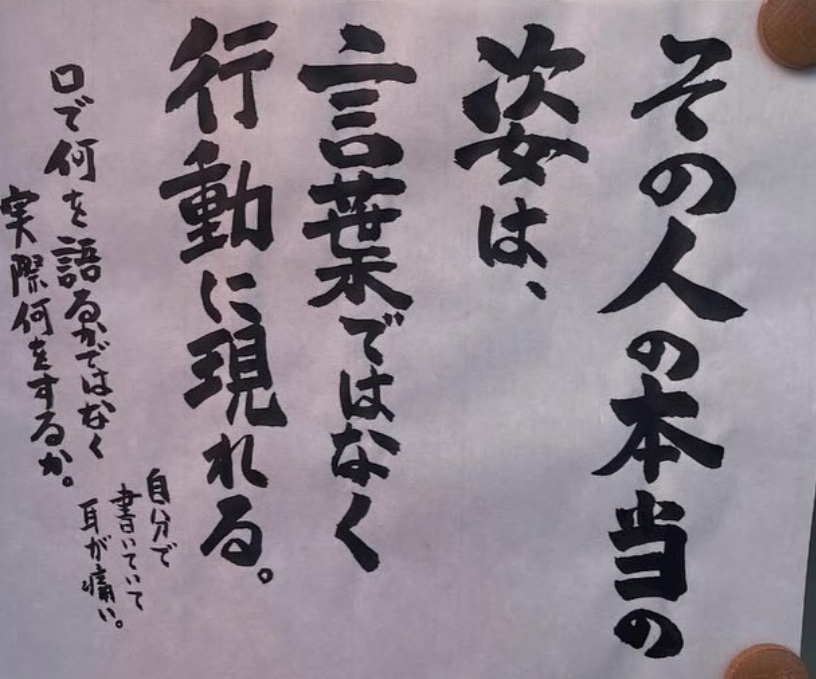 その人の本当の
姿は、
言葉ではなく
行動に現れる。
口で何を語るかではなく
実際何をするか。
自分で
書いていて
耳が痛い。